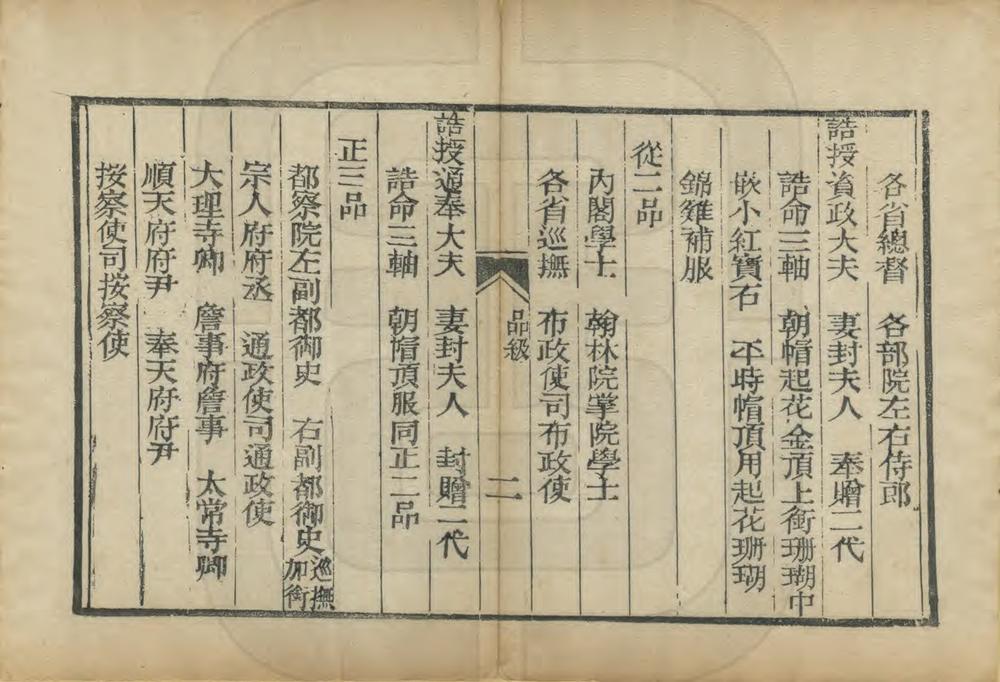 各省總督　各部院左右侍郎
誥授資政大夫　妻封夫人　奉贈二代
誥命三軸　朝帽起花金頂上銜珊瑚中
嵌小紅寶石　平時帽頂用起花珊瑚
錦雞補服
從二品
內閣學士　翰林院掌院學士
各省巡撫　布政使司布政使
品級　二
誥授通奉大夫　妻封夫人　封贈二代
誥命三軸　朝帽頂服同正二品
正三品
都察院左副都御史　右副都御史巡撫加銜
宗人府府丞　通政使司通政使
大理寺卿　詹事府詹事　太常寺卿
順天府府尹　奉天府府尹
按察使司按察使